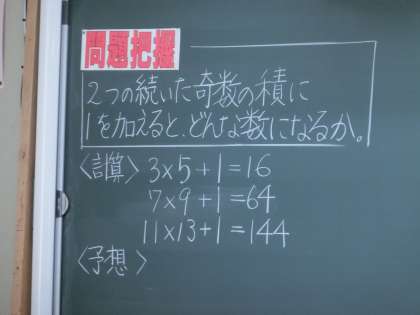 問題把握
2つの続いた奇数の積に
1を加えると、どんな数になるか。
〈計算〉 3×5+1=16
7×9+1=64
11×13+1=144
〈予想〉